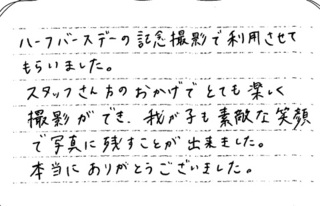 ハーフバースデーの記念撮影で利用させて
もらいました。
スタッフさん方のおかげでとても楽しく
撮影ができ、我が子も素敵な笑顔
で写真に残すことが出来ました。
本当にありがとうございました。